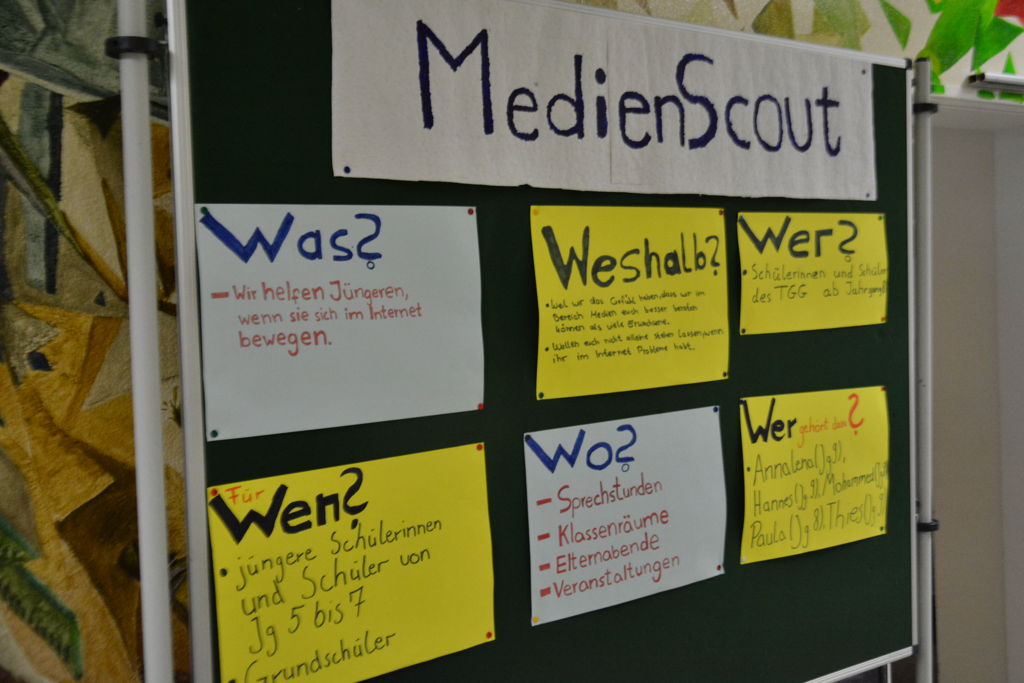 MedienScout
Was?
- Wir helfen Jüngeren,
wenn sie sich im Internet
bewegen.
Weshalb?
• Weil wir das Gefühl haben, dass wir im
Bereich Medien euch besser beraten
können als viele Erwachsene.
• Wollen euch nicht alleine stehen lassen, wenn
ihr im Internet Probleme habt.
Wer?
• Schülerinnen und Schüler
des TGG ab Jahrgang
Für
Wen?
• jüngere Schülerinnen
und Schüler von
Jg 5 bis 7
• Grundschüler
Wo?
- Sprechstunden
- Klassenräume
- Elternabende
- Veranstaltungen
Wer gehört dazu?
• Annalena (Jg 9),
Hannes (Jg. 9), Mohammed
Paula (Jg 8), Thies (Jg. 9),